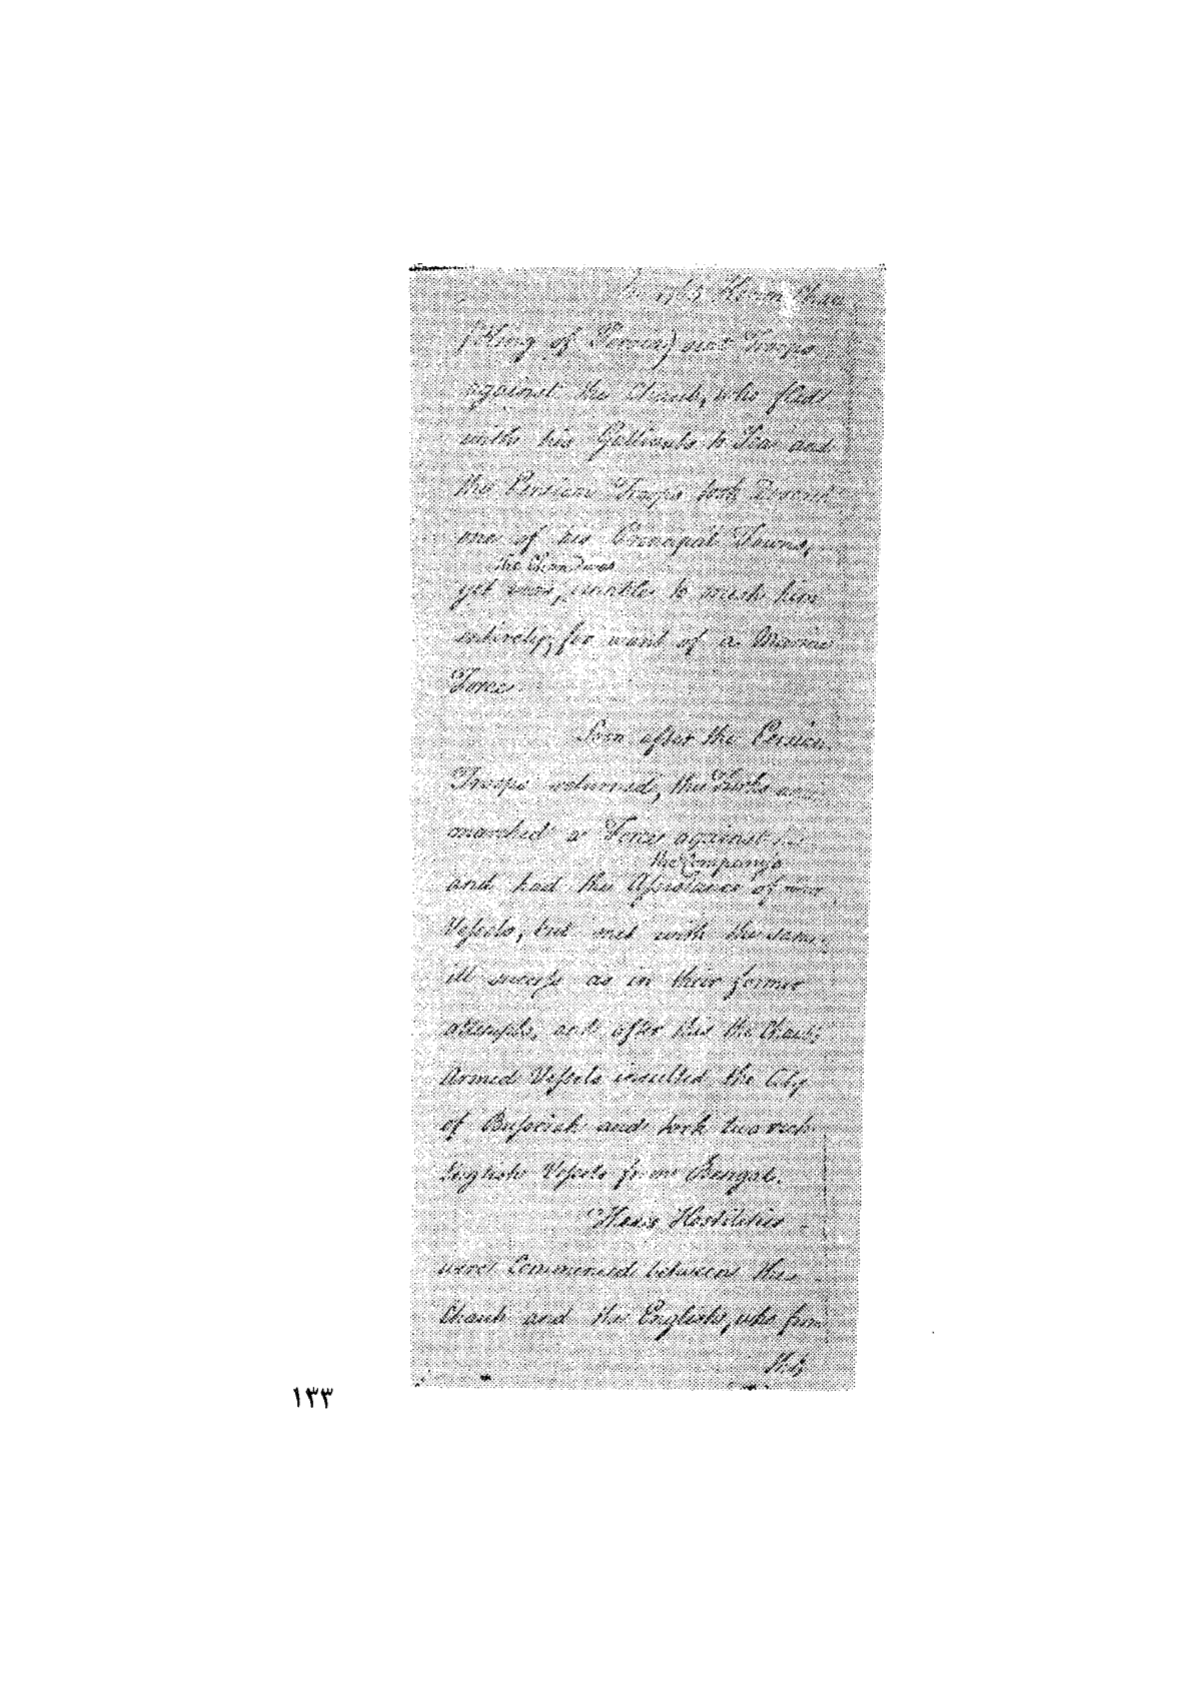 In 1765 Karem Chaun
(King of Persia) sent Troops
against the Chaub, who fled
with his Gallivats to Sea and
the Persian Troops took
one of his Principal Towns,
the Chan was
yet was, unable to crush him
entirely, for want of a Marine
Force.
Soon after the Persian
Troops returned, the Turks
marched a Force against
the Company's
and had the Assistance of
Vessels, but met with the same
ill success as in their former
attempts, and after this the Chaub's
Armed Vessels insulted the City
of Bussorah and took two rich
English Vessels from Bengal.
Thus Hostilities
were Commenced between the
Chaub and the English, who from
this
١٣٣